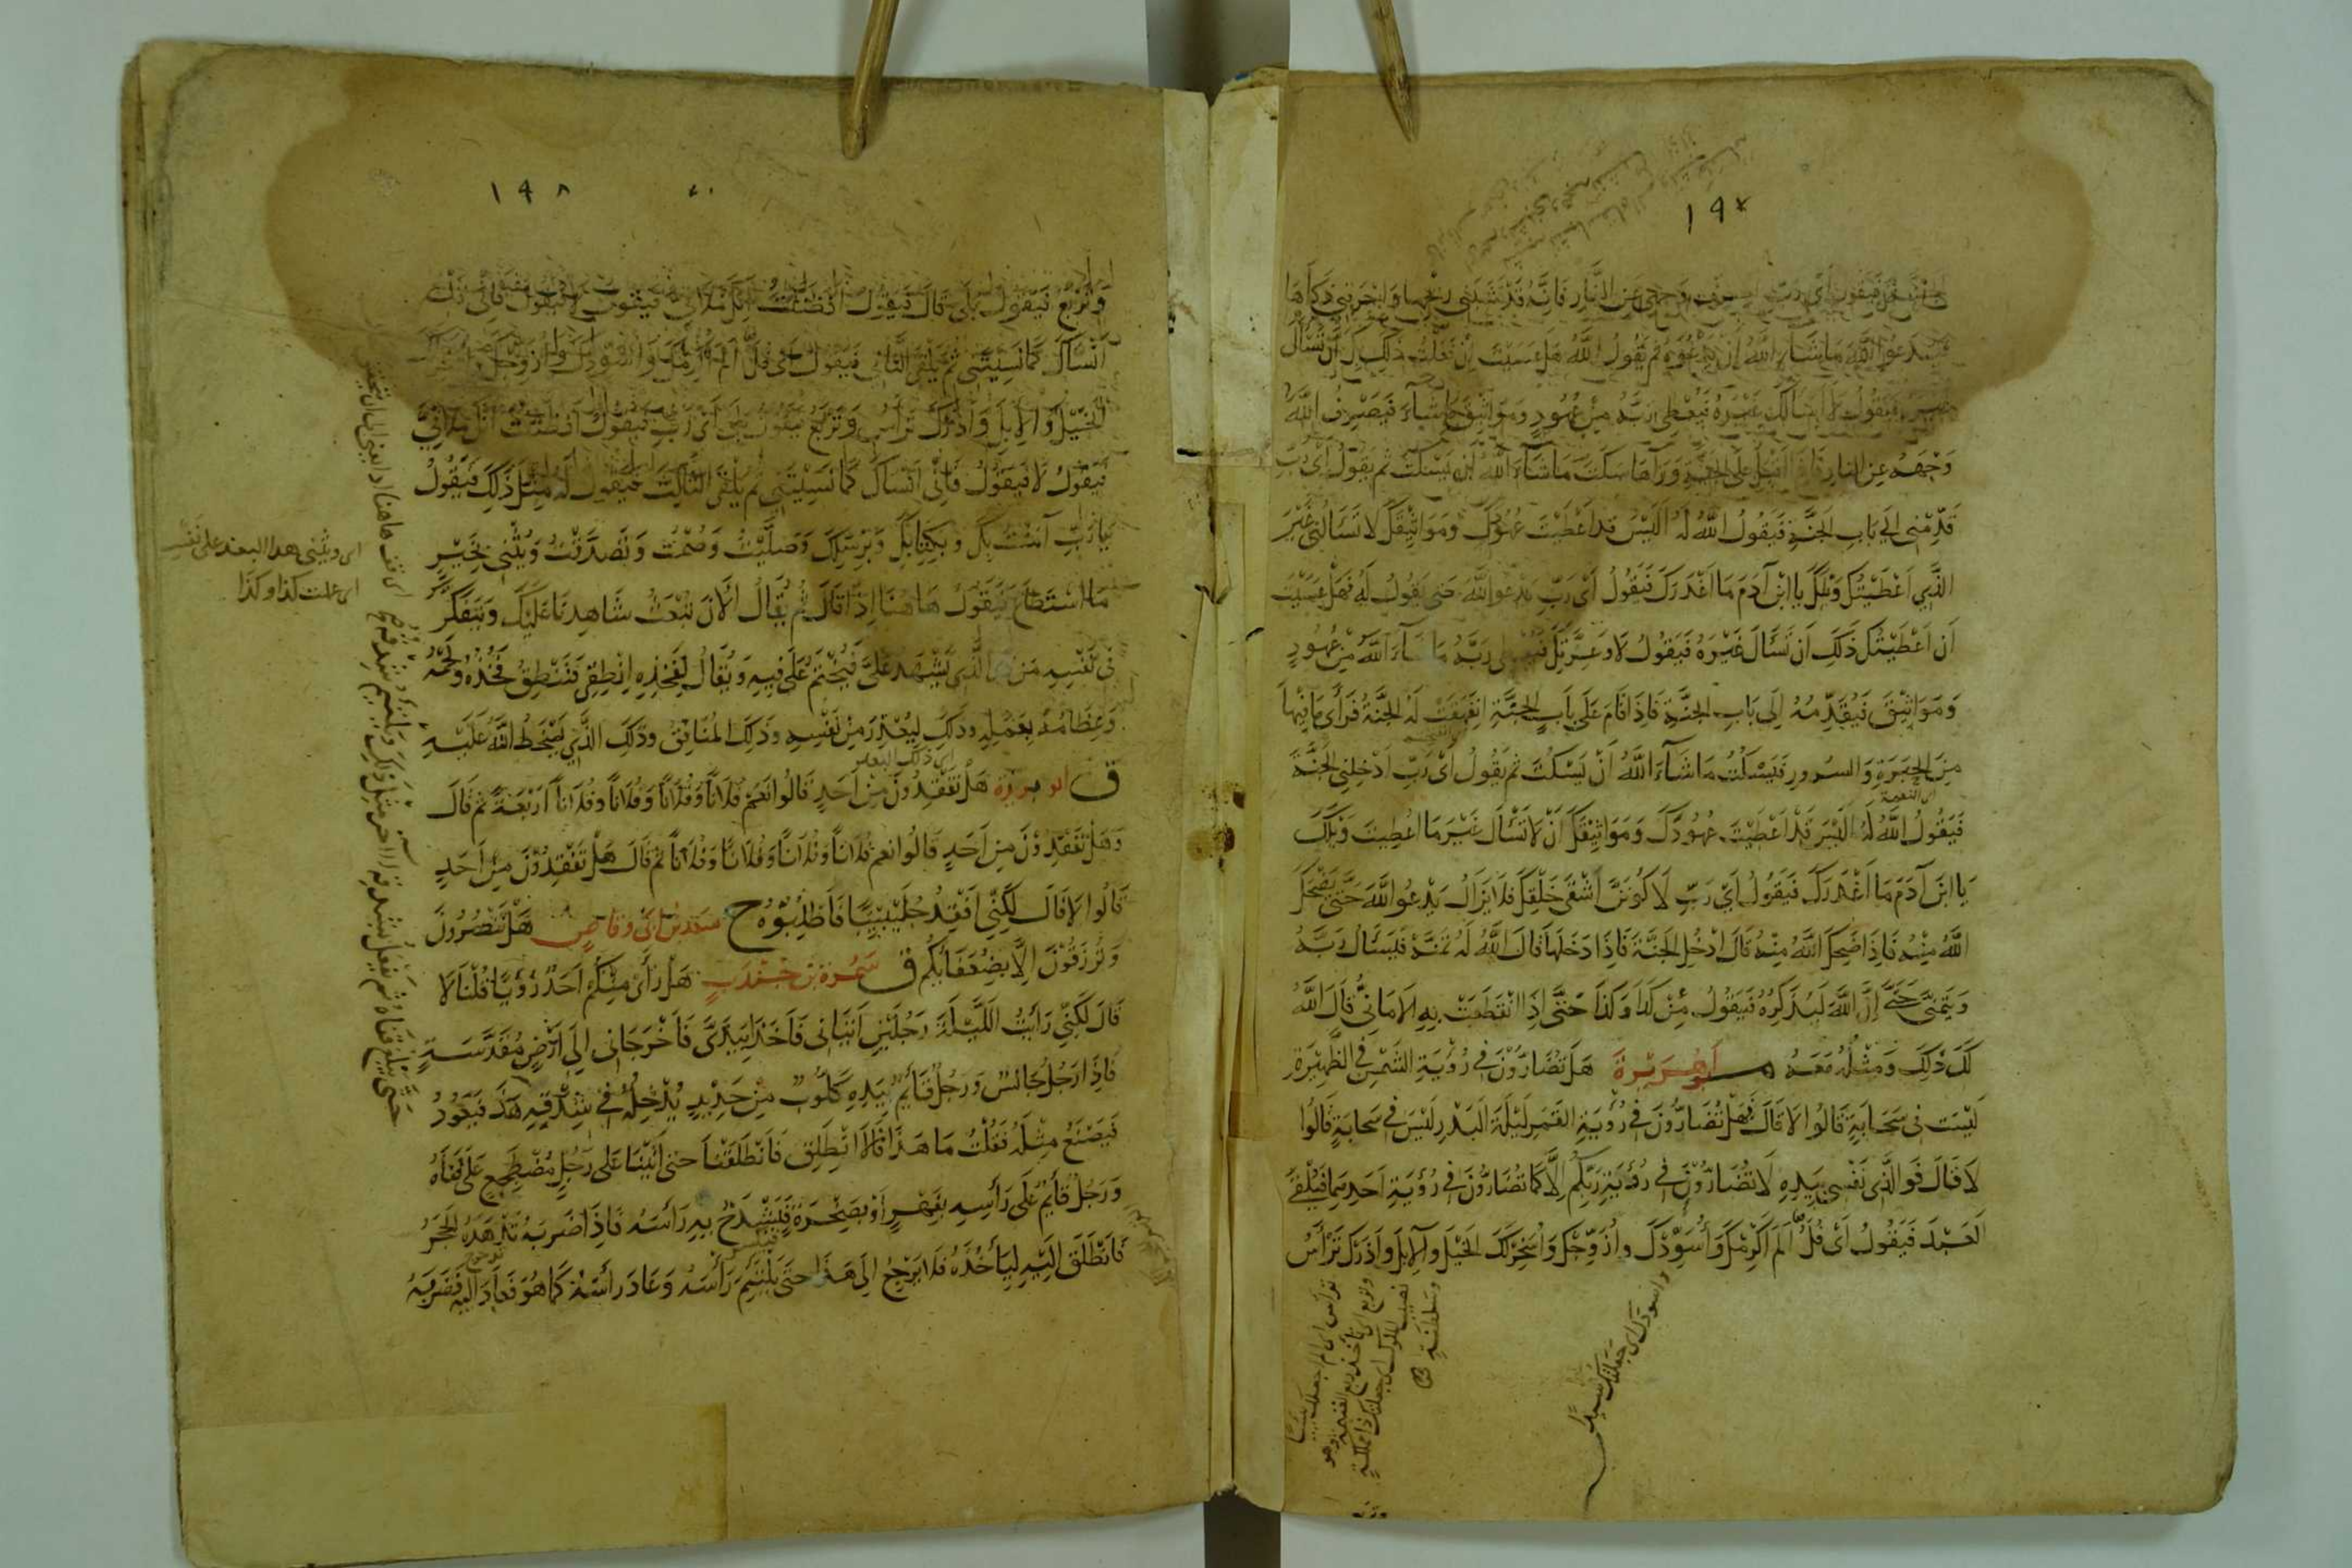 ١٩٧
فيقول أي رب اصرف وجهي عن النار فانه قد قشبني ريحها واحرقني ذكاها
فيدعو الله ما شاء الله ان يدعوه ثم يقول الله هل عسيت ان فعلت ذلك بك ان تسأل
غيره فيقول لا اسالك غيره فيعطي ربه من عهود ومواثيق ما شاء فيصرف الله
وَجْهَهُ عن النار فاذا اقبل على الجنة ورآها سكت ما شاء الله ان يسكت ثم يقول أي رب
قدمني الي باب الجنة فيقول الله له اليس قد اعطيت عهودك ومواثيقك لا تسألني غير
الذي اعطيتك ويلك يا ابن آدم ما اغدرك فيقول اي رب يدعو الله حتى يقول له فهل عسيت
ان اعطيتك ذلك ان تسأل غيره فيقول لا وعزتك فيعطي ربه ما شاء الله من عهود
ومواثيق فيقدمه إلى باب الجنة فاذا قام على باب الجنة انفهقت له الجنة فرأى ما فيها
من الحبرة والسرور فيسكت ما شاء الله ان يسكت ثم يقول أي رب ادخلني الجنة
اي النعمة
فيقول الله له اليس قد اعطيت عهودك ومواثيقك ان لا تسأل غير ما اعطيت ويلك
يا ابن آدم ما اغدرك فيقول اي رب لا اكونن اشقى خلقك فلا يزال يدعو الله حتى يضحك
الله منه فاذا ضحك الله منه قال ادخل الجنة فاذا دخلها قال الله له تمنه فيسأل ربه
ويتمنى حتى إن الله ليذكره فيقول من كذا وكذا حتى إذا انقطعت به الاماني قال الله
لك ذلك ومثله معه م ابو هريرة هل تضارون في رؤية الشمس في الظهيرة
ليست في سحابة قالوا لا قال فهل تضارون في رؤية القمر ليلة البدر ليس في سحابة قالوا
لا قال فوالذي نفسي بيده لا تضارون في رؤية ربكم إلا كما تضارون في رؤية احدهما فيلقى
العبد فيقول أي فل الم اكرمك واسودك وازوجك واسخر لك الخيل والابل واذرك ترأس
واسودك اي جعلتك سيدا
ترأس اي الم اجعلك رئيسا
وتربع اي تأخذ ربع الغنيمة وهو
نصيب الملوك اي جعلتك ذا مملكة
وسلطنة
وتربع
١٩٨
وتربع فيقول بلى قال فيقول افظننت انك ملاقي فيقول لا فيقول فاني
انساك كما نسيتني ثم يلقى الثاني فيقول أي فل الم اكرمك واسودك وازوجك واسخر لك
الخيل والابل واذرك ترأس وتربع فيقول بلى أي رب فيقول افظننت انك ملاقي
فيقول لا فيقول فاني انساك كما نسيتني ثم يلقى الثالث فيقول له مثل ذلك فيقول
يا رب آمنت بك وبكتابك وبرسلك وصليت وصمت وتصدقت ويثني بخير
ما استطاع فيقول هاهنا إذا قال ثم يقال الآن نبعث شاهدنا عليك ويتفكر
في نفسه من الذي يشهد علي فيختم على فيه ويقال لفخذه انطقي فتنطق فخذه ولحمه
وعظامه بعمله وذلك ليعذر من نفسه وذلك المنافق وذلك الذي يسخط الله عليه
اي ذلك البعث
ق ابو برزة هل تفقدون من احد قالوا نعم فلانا وفلانا وفلانا وفلانا اربعة ثم قال
وهل تفقدون من احد قالوا نعم فلانا وفلانا وفلانا وفلانا ثم قال هل تفقدون من احد
قالوا لا قال لكني افقد جليبيبا فاطلبوه خ سعد بن ابي وقاص هل تنصرون
وترزقون الا بضعفائكم ق سمرة بن جندب هل رأى منكم احد رؤيا قلنا لا
قال لكني رايت الليلة رجلين اتياني فاخذا بيدي فاخرجاني الى ارض مقدسة
فاذا رجل جالس ورجل قائم بيده كلوب من حديد يدخله في شدقه هذا فيعود
فيصنع مثله فقلت ما هذا قالا انطلق فانطلقنا حتى اتينا على رجل مضطجع على قفاه
ورجل قائم على رأسه بفهر او بصخرة فيشدخ به رأسه فاذا ضربه تدهده الحجر
فانطلق اليه ليأخذه فلا يرجع الى هذا حتى يلتئم رأسه وعاد رأسه كما هو فعاد اليه فضربه
اي ويثني هذا العبد على نفسه
اي عملت كذا وكذا
حتى يبلغ قفاه ثم يفعل بشدقه الآخر مثل ذلك ويلتئم شدقه